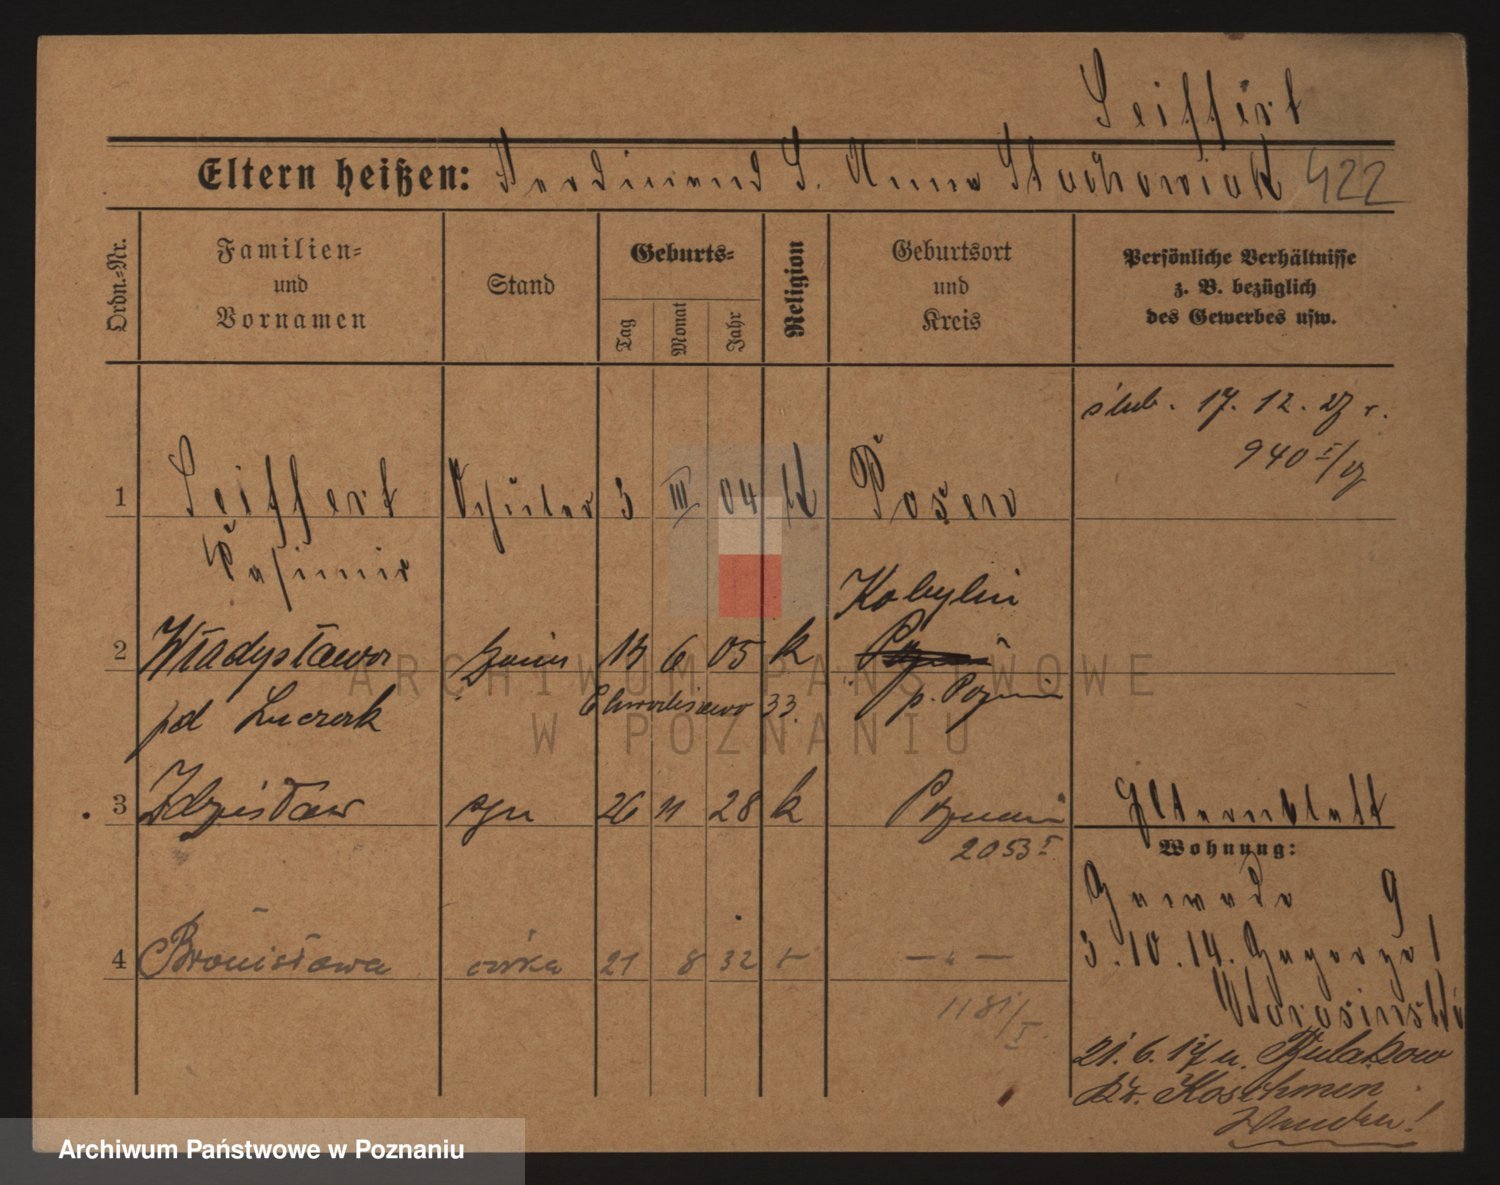 Seiffert
Eltern heißen: Ferdinand S. Anna Stachowiak 422
Ordn.-Nr.
Familien-
und
Vornamen
Stand
Geburts-
Tag
Monat
Jahr
Religion
Geburtsort
und
Kreis
Persönliche Verhältnisse
z. B. bezüglich
des Gewerbes usw.
ślub. 17. 12. 27 r.
940 I/27
1 Seiffert Schüler 3 III 04 k Posen
Kasimir
Kobylin
2 Władysława żona 13 6 05 k
pd Luczak 33. p. Poznań
3 Zdzisław syn 26 11 28 k Poznań
2053 I
Elternblatt
Wohnung:
4 Bronisława córka 21 8 32 k — „ —
1181/I
9
3. 10. 14.
21. 6. 17 n.
Kr. Koschmin
Wenden!
ARCHIWUM PAŃSTWOWE
W POZNANIU
Archiwum Państwowe w Poznaniu